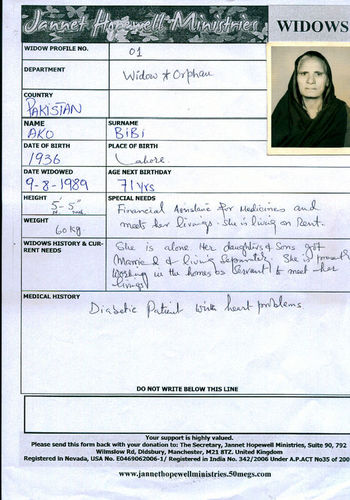 Jannet Hopewell Ministries
WIDOWS
WIDOW PROFILE NO. 01
DEPARTMENT Widow & Orphan
COUNTRY
PAKISTAN
NAME SURNAME
AKO BiBi
DATE OF BIRTH PLACE OF BIRTH
1936 Lahore.
DATE WIDOWED AGE NEXT BIRTHDAY
9-8-1989 71 yrs
HEIGHT SPECIAL NEEDS
5'-5" Financial Assistance for Medicines and
meets her livings. She is living on Rent.
WEIGHT
60 kg
WIDOWS HISTORY & CUR-
RENT NEEDS
She is alone Her daughters & Sons got
Married & living Separately. She is
Working in the homes as Servant to meet her
livings
MEDICAL HISTORY
Diabetic Patient with heart problems
DO NOT WRITE BELOW THIS LINE
Your support is highly valued.
Please send this form back with your donation to: The Secretary, Jannet Hopewell Ministries, Suite 90, 792
Wilmslow Rd, Didsbury, Manchester, M21 8TZ. United Kingdom
Registered in Nevada, USA No. E0469062006-1/ Registered in India No. 342/2006 Under A.P.ACT No35 of 200
www.jannethopewellministries.50megs.com